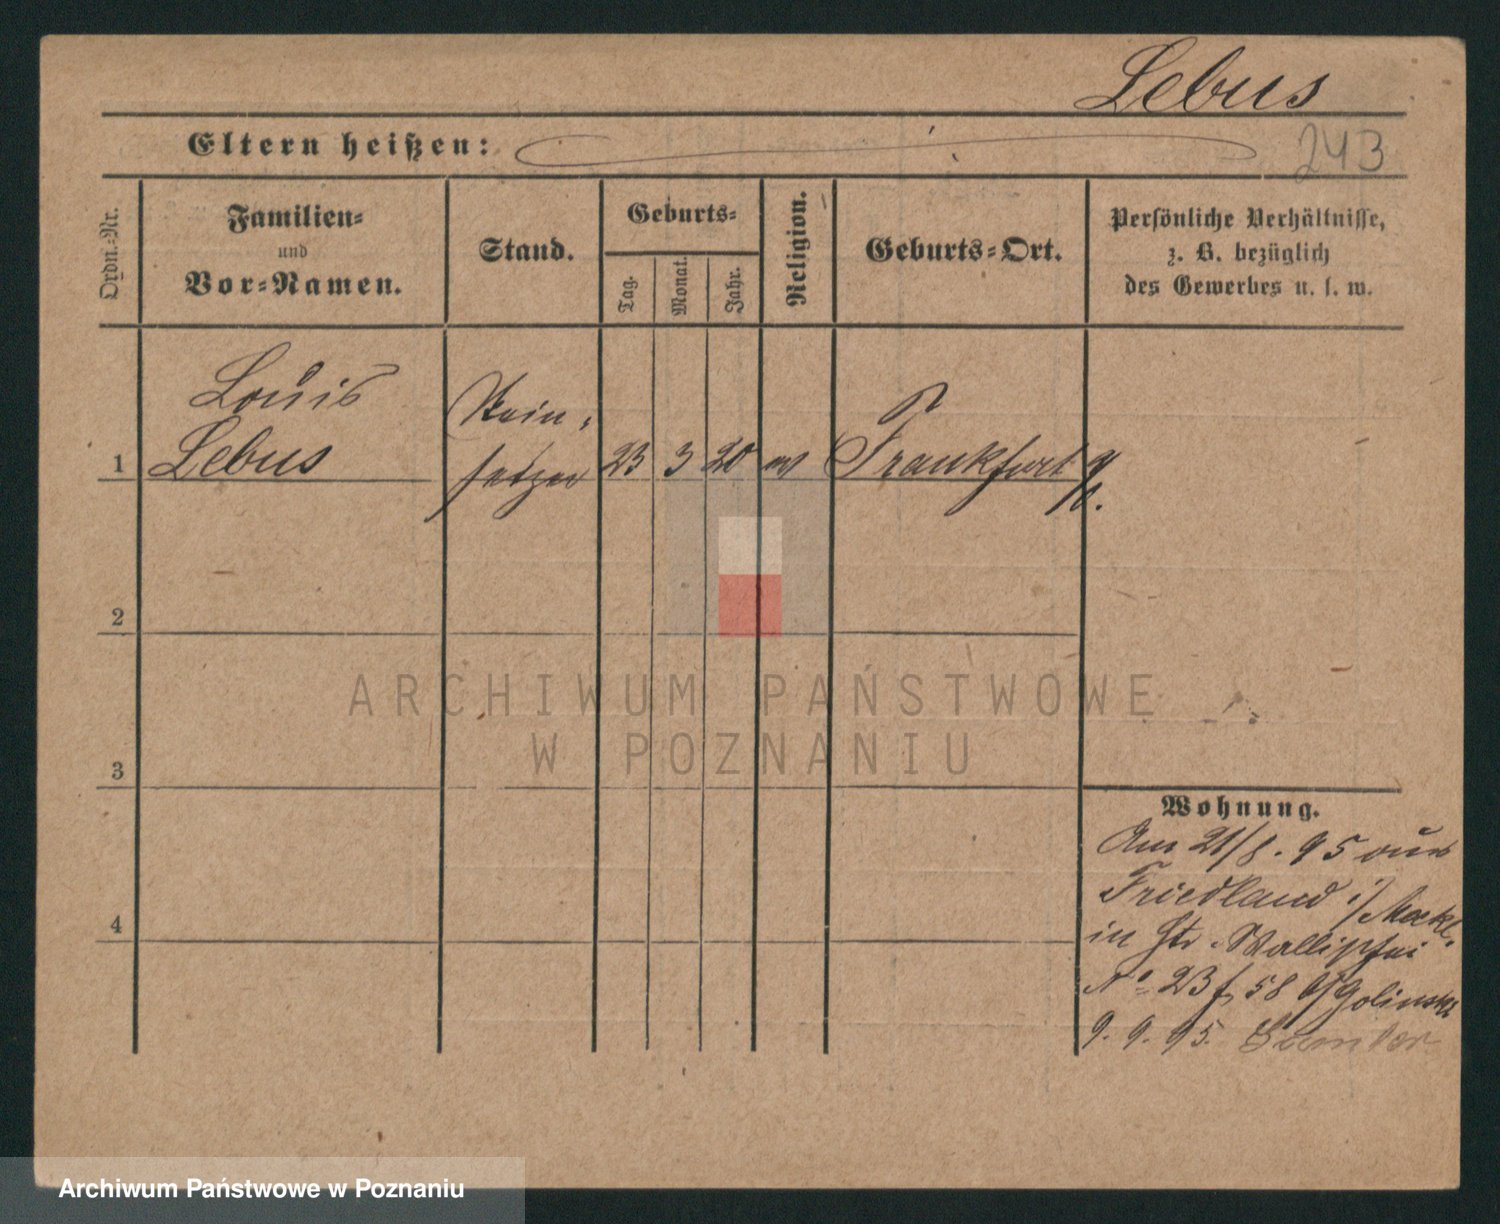 Lebus
Eltern heißen:
243
Ordn.-Nr.
Familien-
und
Vor-Namen.
Stand.
Geburts-
Tag.
Monat.
Jahr.
Religion.
Geburts-Ort.
Persönliche Verhältnisse,
z. B. bezüglich
des Gewerbes u. s. w.
Louis
Lebus
Stein-
setzer
1
23 3 20
Frankfurt a/O.
2
3
4
ARCHIWUM PAŃSTWOWE
W POZNANIU
Wohnung.
Am 21/8. 95 aus
Friedland i/Meckl.
in
No 23 58 b/Golinski
9. 9. 95.
Archiwum Państwowe w Poznaniu